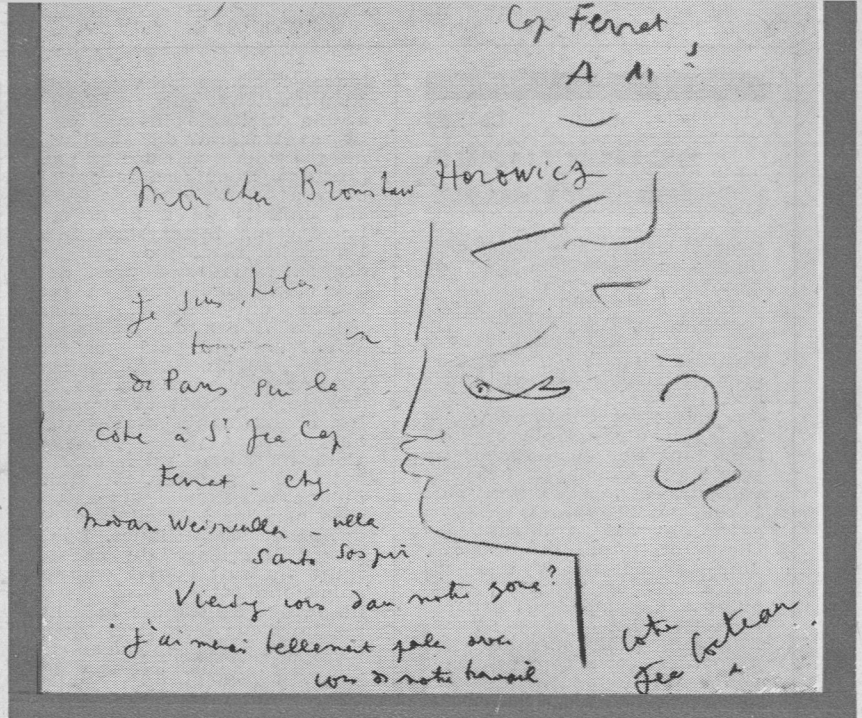 Cap Ferrat
A
Mon cher Bronislaw Horowicz
Je suis, hélas.
de Paris sur la
côte à St Jea Cap
Ferrat - chez
Madam Weisweiller - villa
Santo Sospir.
Viendrez vous dans notre zone?
J'aimerais tellement parler avec
vous de notre travail
Votre
Jean Cocteau